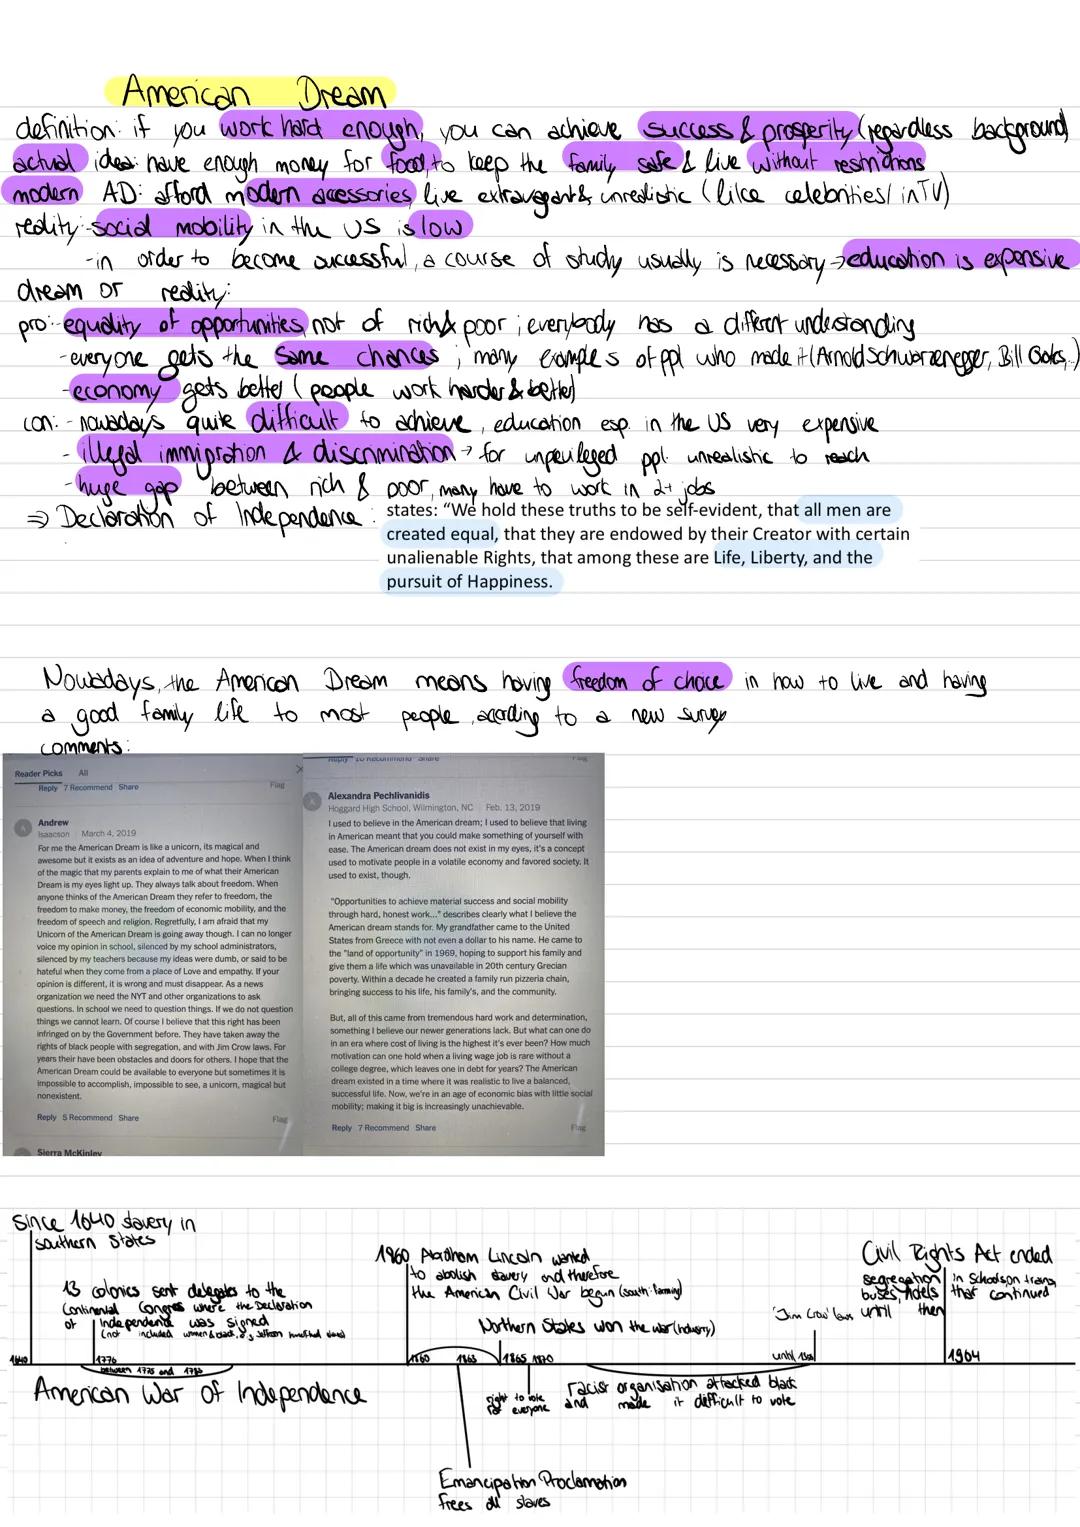 American Dream
definition: if you work hard enough, you can achieve success & prosperity (regardless background)
actual idea: have enough money for food, to keep the family safe & live without restrictions
modern AD: afford modern accessories, live extravagant & unrealistic (like celebrities / in TV)
reality: -social mobility in the US is low
-in order to become successful, a course of study usually is necessary → education is expensive
dream or reality:
pro: -equality of opportunities not of rich & poor ; everybody has a different understanding
-everyone gets the same chances ; many examples of ppl who made it (Arnold Schwarzenegger, Bill Gates,..)
-economy gets better (people work harder & better)
con: - nowadays quite difficult to achieve, education esp. in the US very expensive
- illegal immigration & discrimination → for unpriviliged ppl. unrealistic to reach
-huge gap between rich & poor, many have to work in 2+ jobs
⇒ Declaration of Independence: states: “We hold these truths to be self-evident, that all men are
created equal, that they are endowed by their Creator with certain
unalienable Rights, that among these are Life, Liberty, and the
pursuit of Happiness.
Nowadays, the American Dream means having freedom of choice in how to live and having
a good family life to most people, according to a new survey
comments:
Reader Picks All
Reply 7 Recommend Share Flag
Andrew
Isaacson March 4, 2019
For me the American Dream is like a unicorn, its magical and
awesome but it exists as an idea of adventure and hope. When I think
of the magic that my parents explain to me of what their American
Dream is my eyes light up. They always talk about freedom. When
anyone thinks of the American Dream they refer to freedom, the
freedom to make money, the freedom of economic mobility, and the
freedom of speech and religion. Regretfully, I am afraid that my
Unicorn of the American Dream is going away though. I can no longer
voice my opinion in school, silenced by my school administrators,
silenced by my teachers because my ideas were dumb, or said to be
hateful when they come from a place of Love and empathy. If your
opinion is different, it is wrong and must disappear. As a news
organization we need the NYT and other organizations to ask
questions. In school we need to question things. If we do not question
things we cannot learn. Of course I believe that this right has been
infringed on by the Government before. They have taken away the
rights of black people with segregation, and with Jim Crow laws. For
years their have been obstacles and doors for others. I hope that the
American Dream could be available to everyone but sometimes it is
impossible to accomplish, impossible to see, a unicorn, magical but
nonexistent.
Reply 5 Recommend Share Flag
Sierra McKinley
Reply 10 Recommend Share Flag
Alexandra Pechlivanidis
Hoggard High School, Wilmington, NC Feb. 13, 2019
I used to believe in the American dream; I used to believe that living
in American meant that you could make something of yourself with
ease. The American dream does not exist in my eyes, it's a concept
used to motivate people in a volatile economy and favored society. It
used to exist, though.
"Opportunities to achieve material success and social mobility
through hard, honest work..." describes clearly what I believe the
American dream stands for. My grandfather came to the United
States from Greece with not even a dollar to his name. He came to
the "land of opportunity" in 1969, hoping to support his family and
give them a life which was unavailable in 20th century Grecian
poverty. Within a decade he created a family run pizzeria chain,
bringing success to his life, his family's, and the community.
But, all of this came from tremendous hard work and determination,
something I believe our newer generations lack. But what can one do
in an era where cost of living is the highest it's ever been? How much
motivation can one hold when a living wage job is rare without a
college degree, which leaves one in debt for years? The American
dream existed in a time where it was realistic to live a balanced,
successful life. Now, we're in an age of economic bias with little social
mobility; making it big is increasingly unachievable.
Reply 7 Recommend Share Flag
Since 1640 slavery in
southern States
13 colonies sent delegates to the
Continental Congres where the Declaration
of Independence was signed
(not included women & black, e.g. Jefferson himself had slaves)
1640
1776
between 1775 and 1783
American War of Independence
1960 Abraham Lincoln wanted
to abolish slavery and therefore
the American Civil War began (south: farming)
Northern States won the war (industry)
1860 1863 1865 1870
right to vote
for everyone
Emancipation Proclamation
frees all slaves
racist organisation attacked black
and made it difficult to vote
'Jim Crow' laws until then
until
Civil Rights Act ended
segregation in Schools, on trains,
buses, hotels that continued
1964